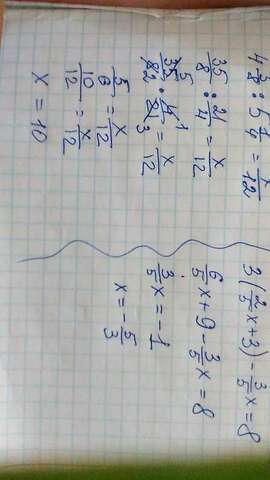 4 3/8 : 5 1/4 = x/12
35/8 : 21/4 = x/12
5 1
35/82 · 4/21 3 = x/12
5/6 = x/12
10/12 = x/12
x = 10
3(2/5x+3) - 3/5x = 8
6/5x + 9 - 3/5x = 8
3/5x = -1
x = -5/3